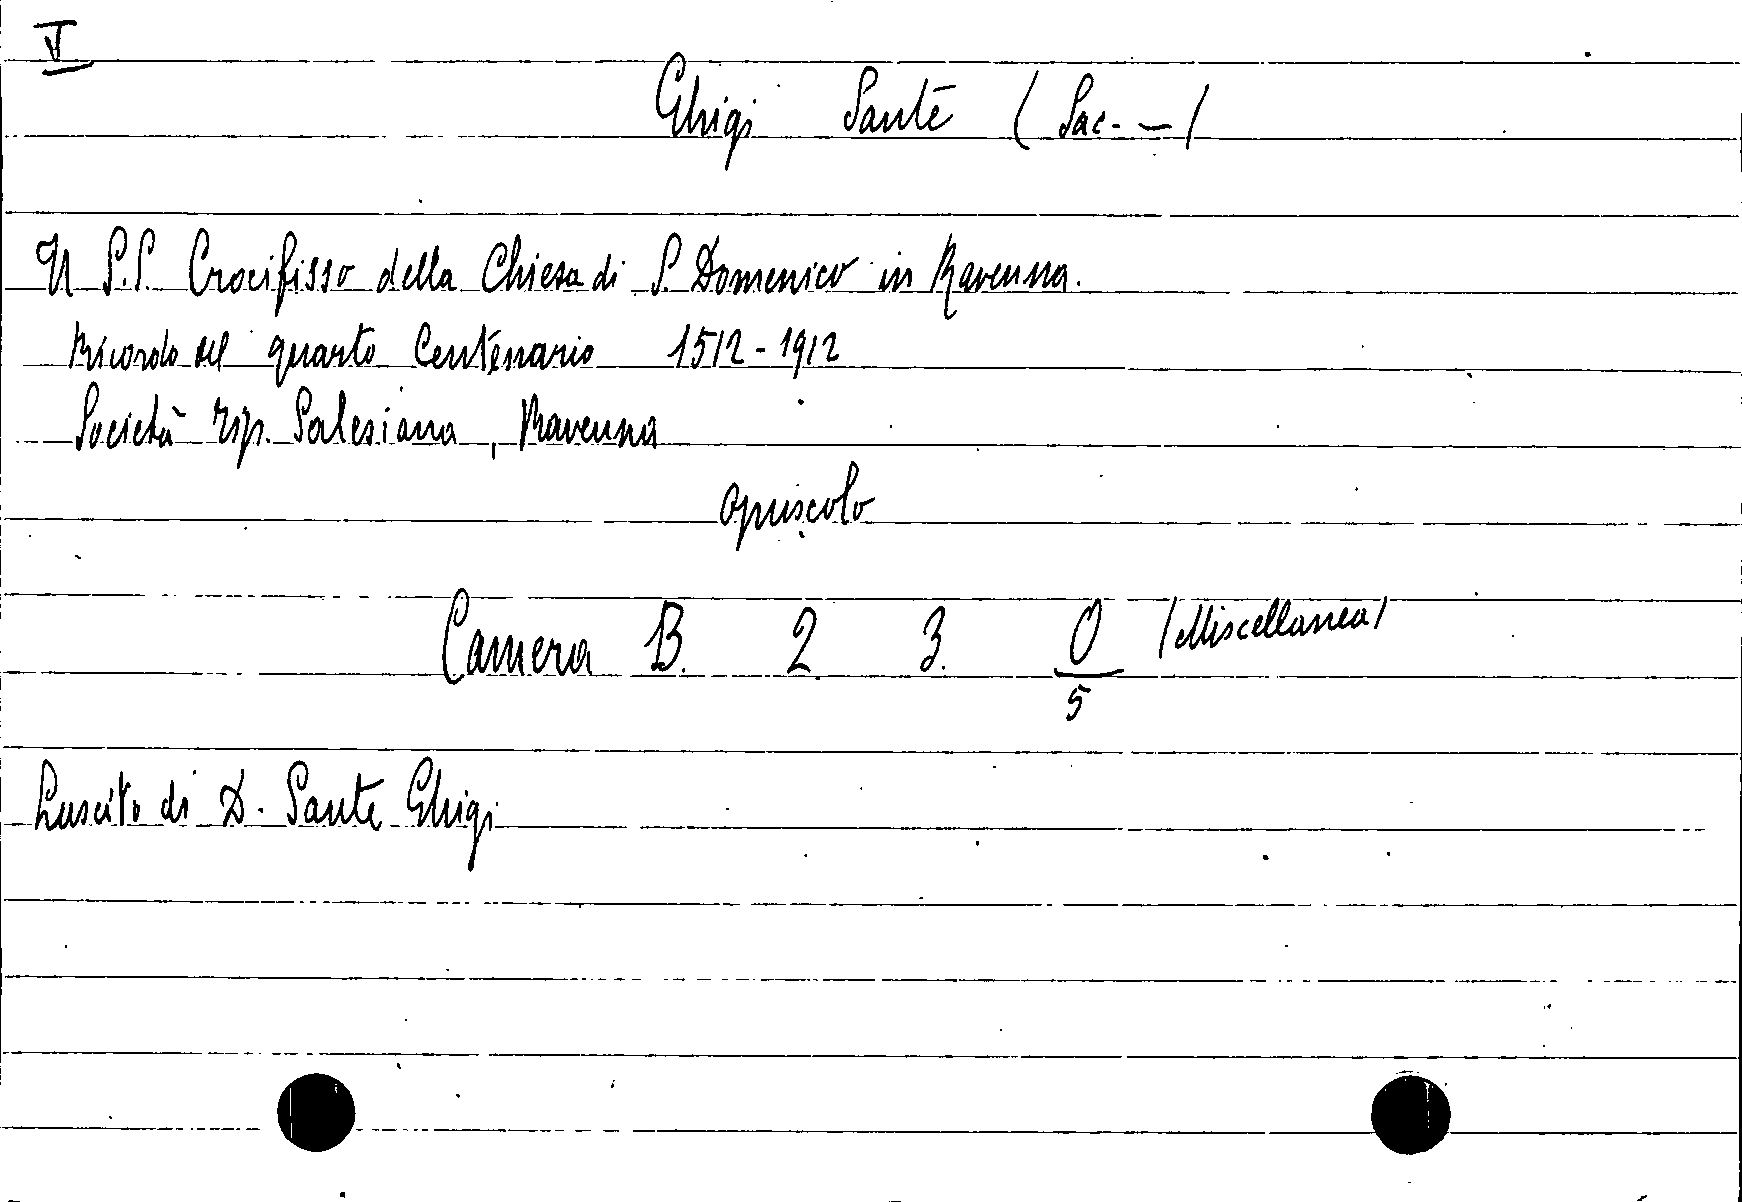 V
Ghigi Sante ( Sac. — )
Il S.S. Crocifisso della Chiesa di S. Domenico in Ravenna.
Ricordo del quarto Centenario 1512-1912
Società Tip. Salesiana, Ravenna
opuscolo
Camera B. 2. 3. O (Miscellanea)
5
Lascito di D. Sante Ghigi